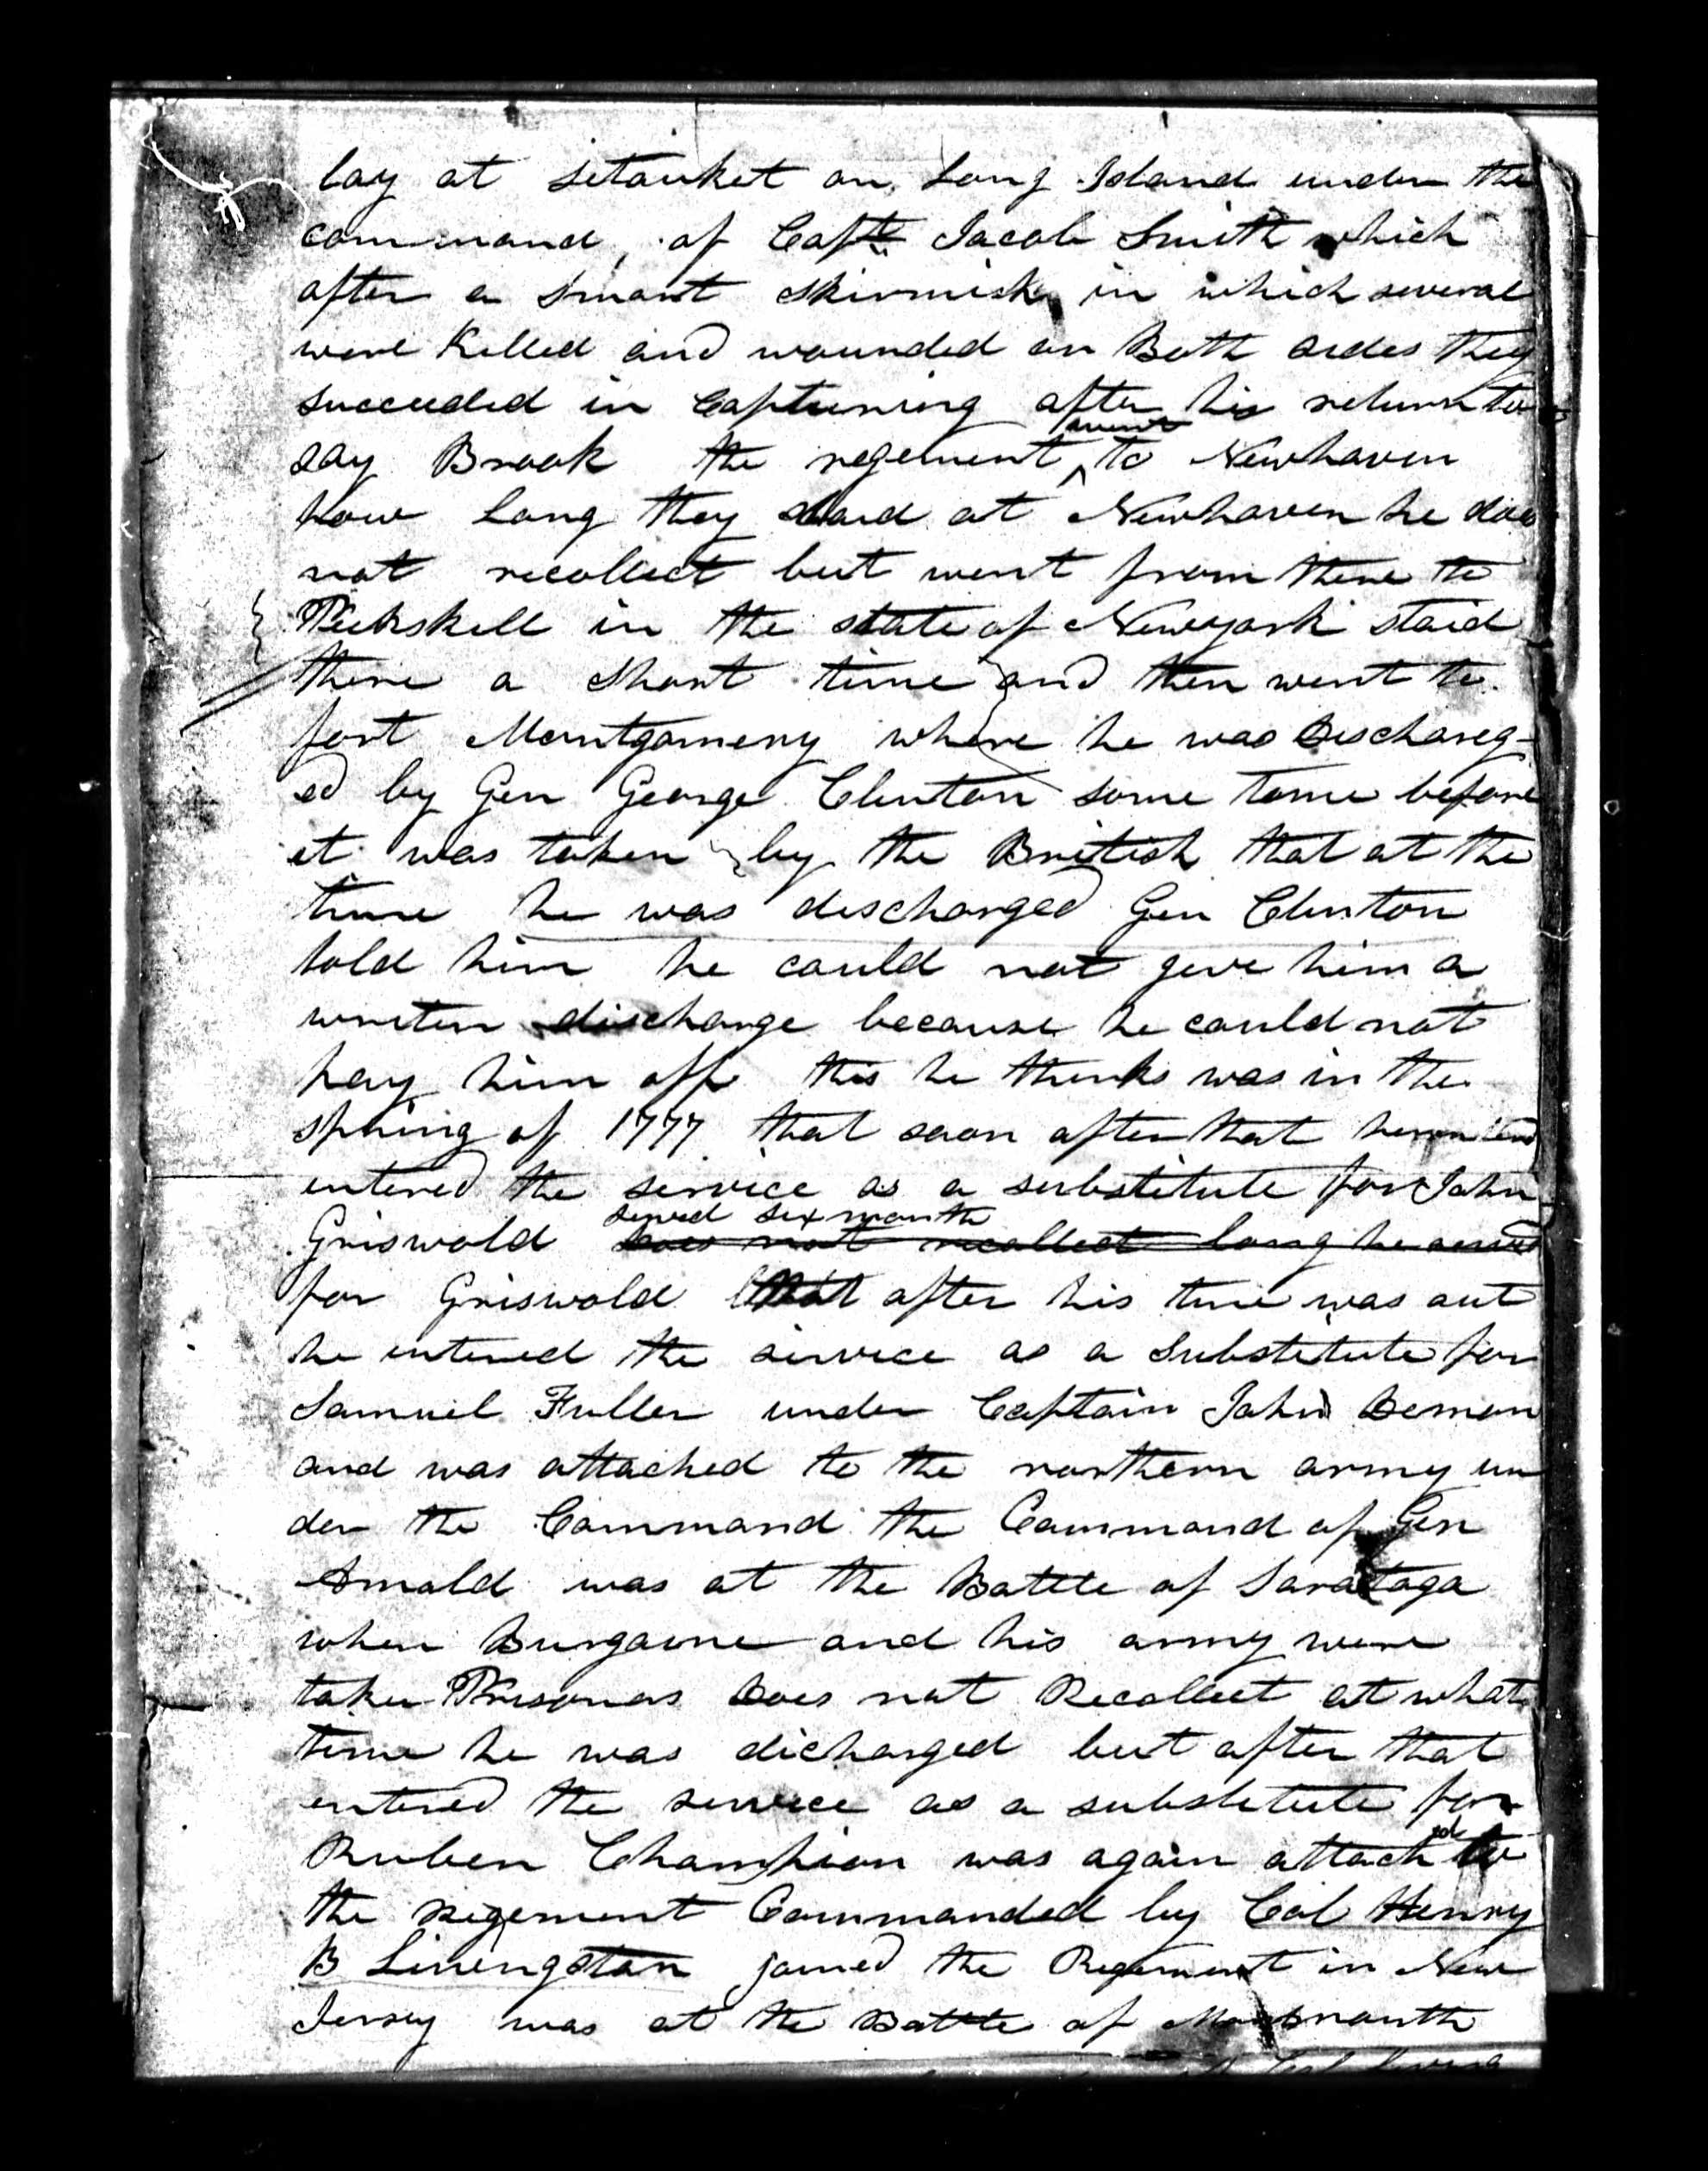 lay at Setauket on Long Island under the
command of Capt Jacob Smith which
after a Smart Skirmish in which several
were Killed and wounded on Both sides they
succeeded in Capturing after his return to
say Brook the regement went to Newhaven
how long they staid at Newhaven he does
not recollect but went from there to
Peekskill in the state of Newyork staid
there a short time and then went to
fort Montgomery where he was Dischareg-
ed by Gen George Clinton some time before
it was taken by the British that at the
time he was discharged Gen Clinton
told him he could not give him a
writen discharge because he could not
pay him off this he thinks was in the
spring of 1777 that soon after that he
entered the service as a substitute for John
Griswold served six month does not recollect long he served
for Griswold that after his time was out
he entered the service as a Substitute for
Samuel Fuller under Captain John Bemen
and was attached to the northern army un
der the Command the Command of Gen
Arnold was at the Battle of Saratoga
when Burgoine and his army were
taken Prisoners Does not Recollect at what
time he was dicharged but after that
entered the service as a substitute for
Ruben Champion was again attached to
the regement Commanded by Col Henry
B Livingston joined the Regement in New
Jersey was at the Battle of Monmouth